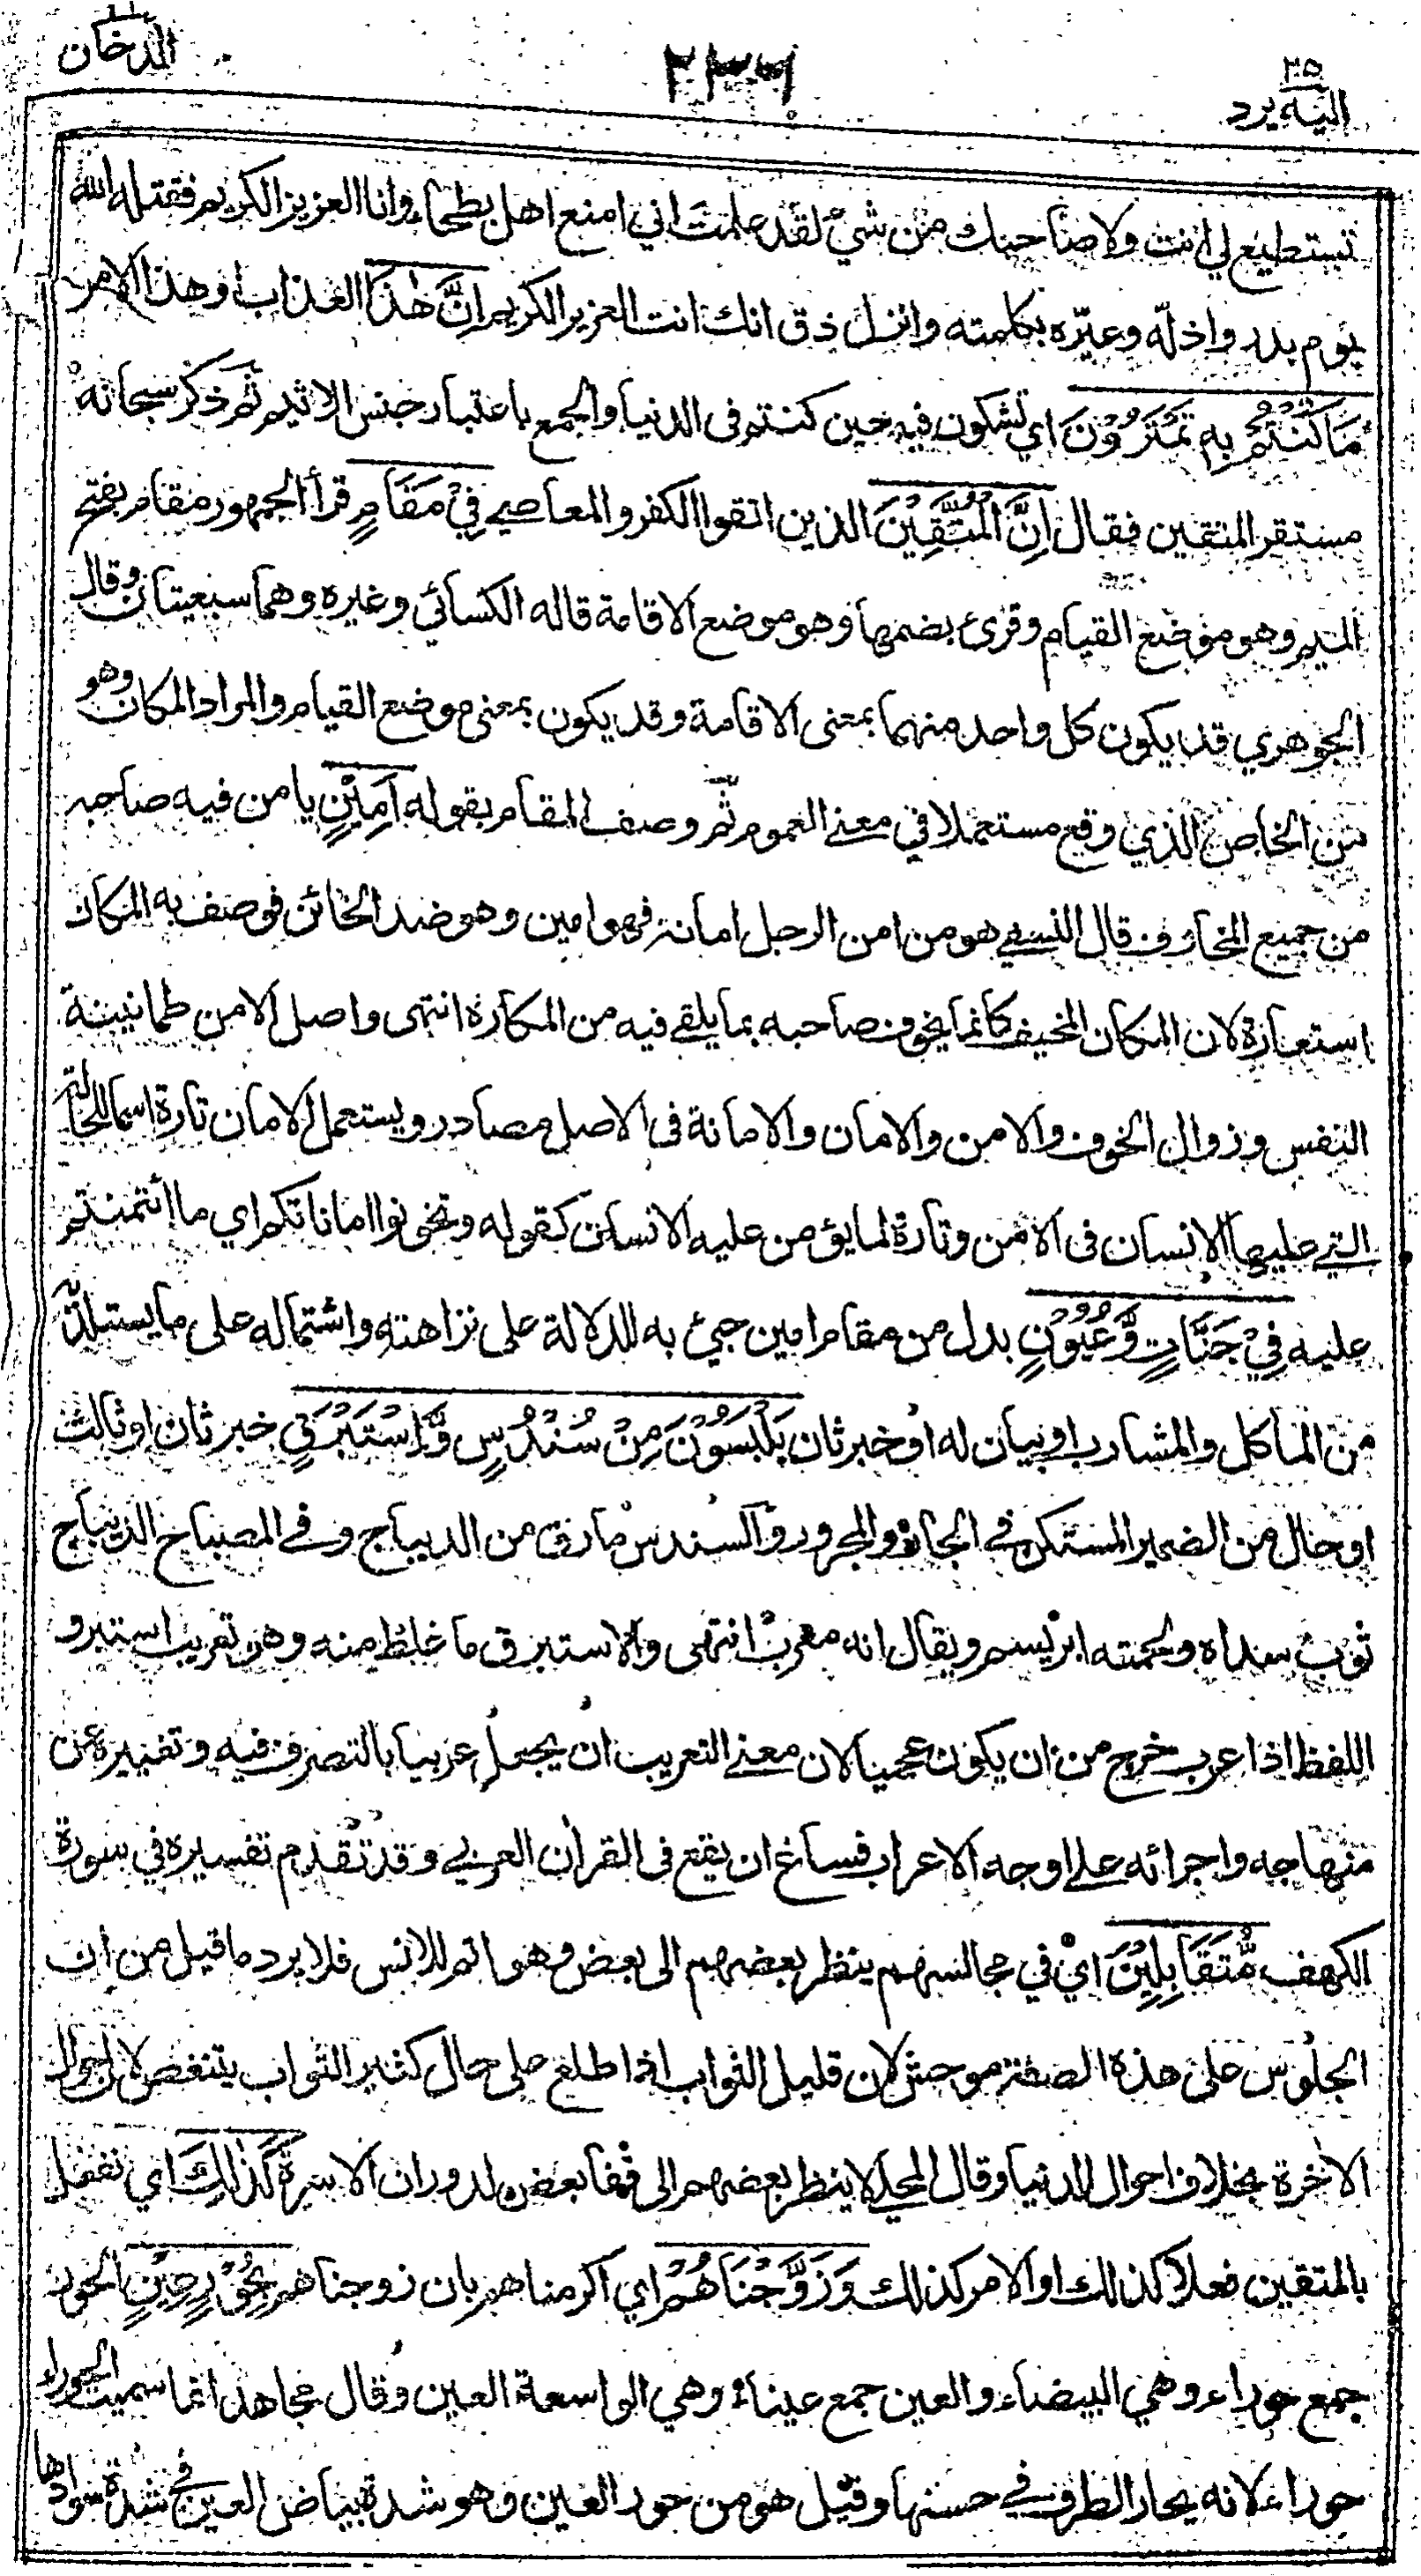 الدخان
٢٣٦
٢٥
اليه يرد
تستطيع لي انت ولا صاحبك من شيء لقد علمت اني امنع اهل بطحاء وانا العزيز الكريم فقتله الله
يوم بدر واذله وعيّره بكلمته وانزل ذق انك انت العزيز الكريم اِنَّ هٰذَا العذاب او هذا الامر
مَا كُنْتُمْ بِهٖ تَمْتَرُوْنَ اي تشكون فيه حين كنتم فى الدنيا والجمع باعتبار جنس الاثيم ثم ذكر سبحانه
مستقر المتقين فقال اِنَّ الْمُتَّقِيْنَ الذين اتقوا الكفر والمعاصي فِيْ مَقَامٍ قرأ الجمهور مقام بفتح
الميم وهو موضع القيام وقرئ بضمها وهو موضع الاقامة قاله الكسائي وغيره وهما سبعيتان وقال
الجوهري قد يكون كل واحد منهما بمعنى الاقامة وقد يكون بمعنى موضع القيام والمراد المكان وهو
من الخاص الذي وقع مستعملا في معنى العموم ثم وصف المقام بقوله اَمِيْنٍ يامن فيه صاحبه
من جميع المخاوف قال النسفي هو من امن الرجل امانة فهو امين وهو ضد الخائن فوصف به المكان
استعارة لان المكان المخيف كانما يخوف صاحبه بما يلقى فيه من المكاره انتهى واصل الامن طمانينة
النفس وزوال الخوف والامن والامان والامانة فى الاصل مصادر ويستعمل الامان تارة اسما للحالة
التي عليها الانسان فى الامن وتارة لما يؤمن عليه الانسان كقوله وتخونوا اماناتكم اي ما ائتمنتم
عليه فِيْ جَنَّاتٍ وَّعُيُوْنٍ بدل من مقام امين جيء به للدلالة على نزاهته واشتماله على ما يستلذ
من المآكل والمشارب او بيان له او خبر ثان يَلْبَسُوْنَ مِنْ سُنْدُسٍ وَّاِسْتَبْرَقٍ خبر ثان او ثالث
او حال من الضمير المستكن في الجار والمجرور والسندس ما رق من الديباج وفي المصباح الديباج
ثوب سداه ولحمته ابريسم ويقال انه معرب انتهى والاستبرق ما غلظ منه وهو تعريب استبرو
اللفظ اذا عرب خرج من ان يكون عجميا لان معنى التعريب ان يجعل عربيا بالتصرف فيه وتغييره عن
منهاجه واجرائه على اوجه الاعراب فساغ ان يقع فى القرآن العربي وقد تقدم تفسيره في سورة
الكهف مُّتَقَابِلِيْنَ اي في مجالسهم ينظر بعضهم الى بعض وهو اتم للانس فلا يرد ما قيل من ان
الجلوس على هذه الصفة موحش لان قليل الثواب اذا طلع على حال كثير الثواب يتنغص لان احوال
الآخرة بخلاف احوال الدنيا وقال المحلي لا ينظر بعضهم الى قفا بعض لدوران الاسرة كَذٰلِكَ اي نفعل
بالمتقين فعلا كذلك او الامر كذلك وَزَوَّجْنَاهُمْ اي اكرمناهم بان زوجناهم بِحُوْرٍ عِيْنٍ الحور
جمع حوراء وهي البيضاء والعين جمع عيناء وهي الواسعة العين وقال مجاهد انما سميت الحوراء
حوراء لانه يحار الطرف في حسنها وقيل هو من حور العين وهو شدة بياض العين في شدة سوادها